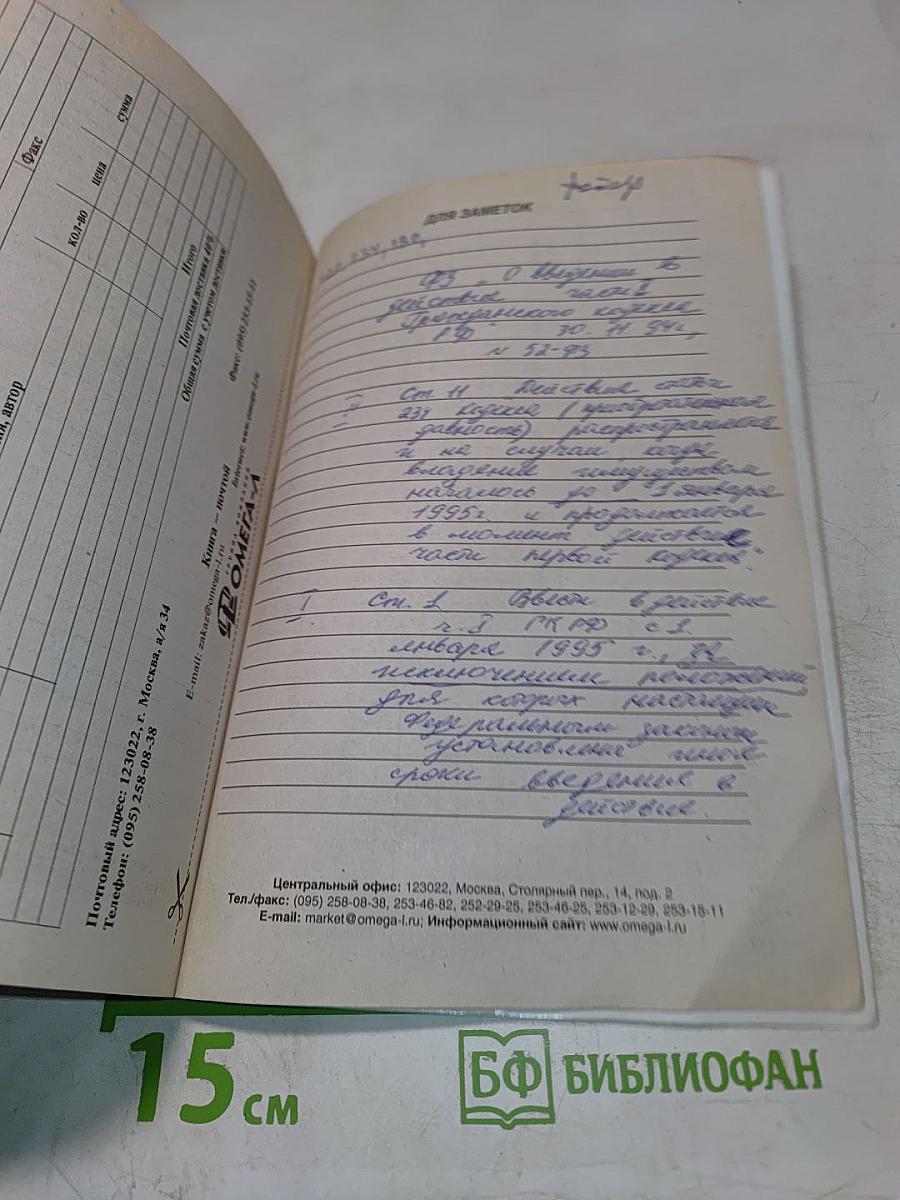 Факс
кол-во
цена
сумма
Итого
Почтовая доставка 40%
Общая сумма с учетом доставки
автор
Факс: (095) 253-15-11
Книга – почтой
E-mail: zakaz@omega-l.ru
Internet: www.omega-l.ru
ОМЕГА-Л
Почтовый адрес: 123022, г. Москва, а/я 34
Телефон: (095) 258-08-38
ДЛЯ ЗАМЕТОК
ФЗ „О введении в
действие части I
Гражданского кодекса
РФ" 30. 11 94г,
N 52-ФЗ
II Ст. 11 Действие статьи
234 Кодекса (приобретательная
давность) распространяется
и на случаи когда
владение имуществом
началось до 1 января
1995г и продолжается
в момент действия
части первой кодекса".
I. Ст. 1 Ввести в действие
ч. I ГК РФ с 1
января 1995 г., за
исключением положений
для которых настоящим
Федеральным законом
установлены иные
сроки введения в
действие.
Центральный офис: 123022, Москва, Столярный пер., 14, под. 2
Тел./факс: (095) 258-08-38, 253-46-82, 252-29-25, 253-46-25, 253-12-29, 253-15-11
E-mail: market@omega-l.ru; Информационный сайт: www.omega-l.ru
15 см
БФ БИБЛИОФАН